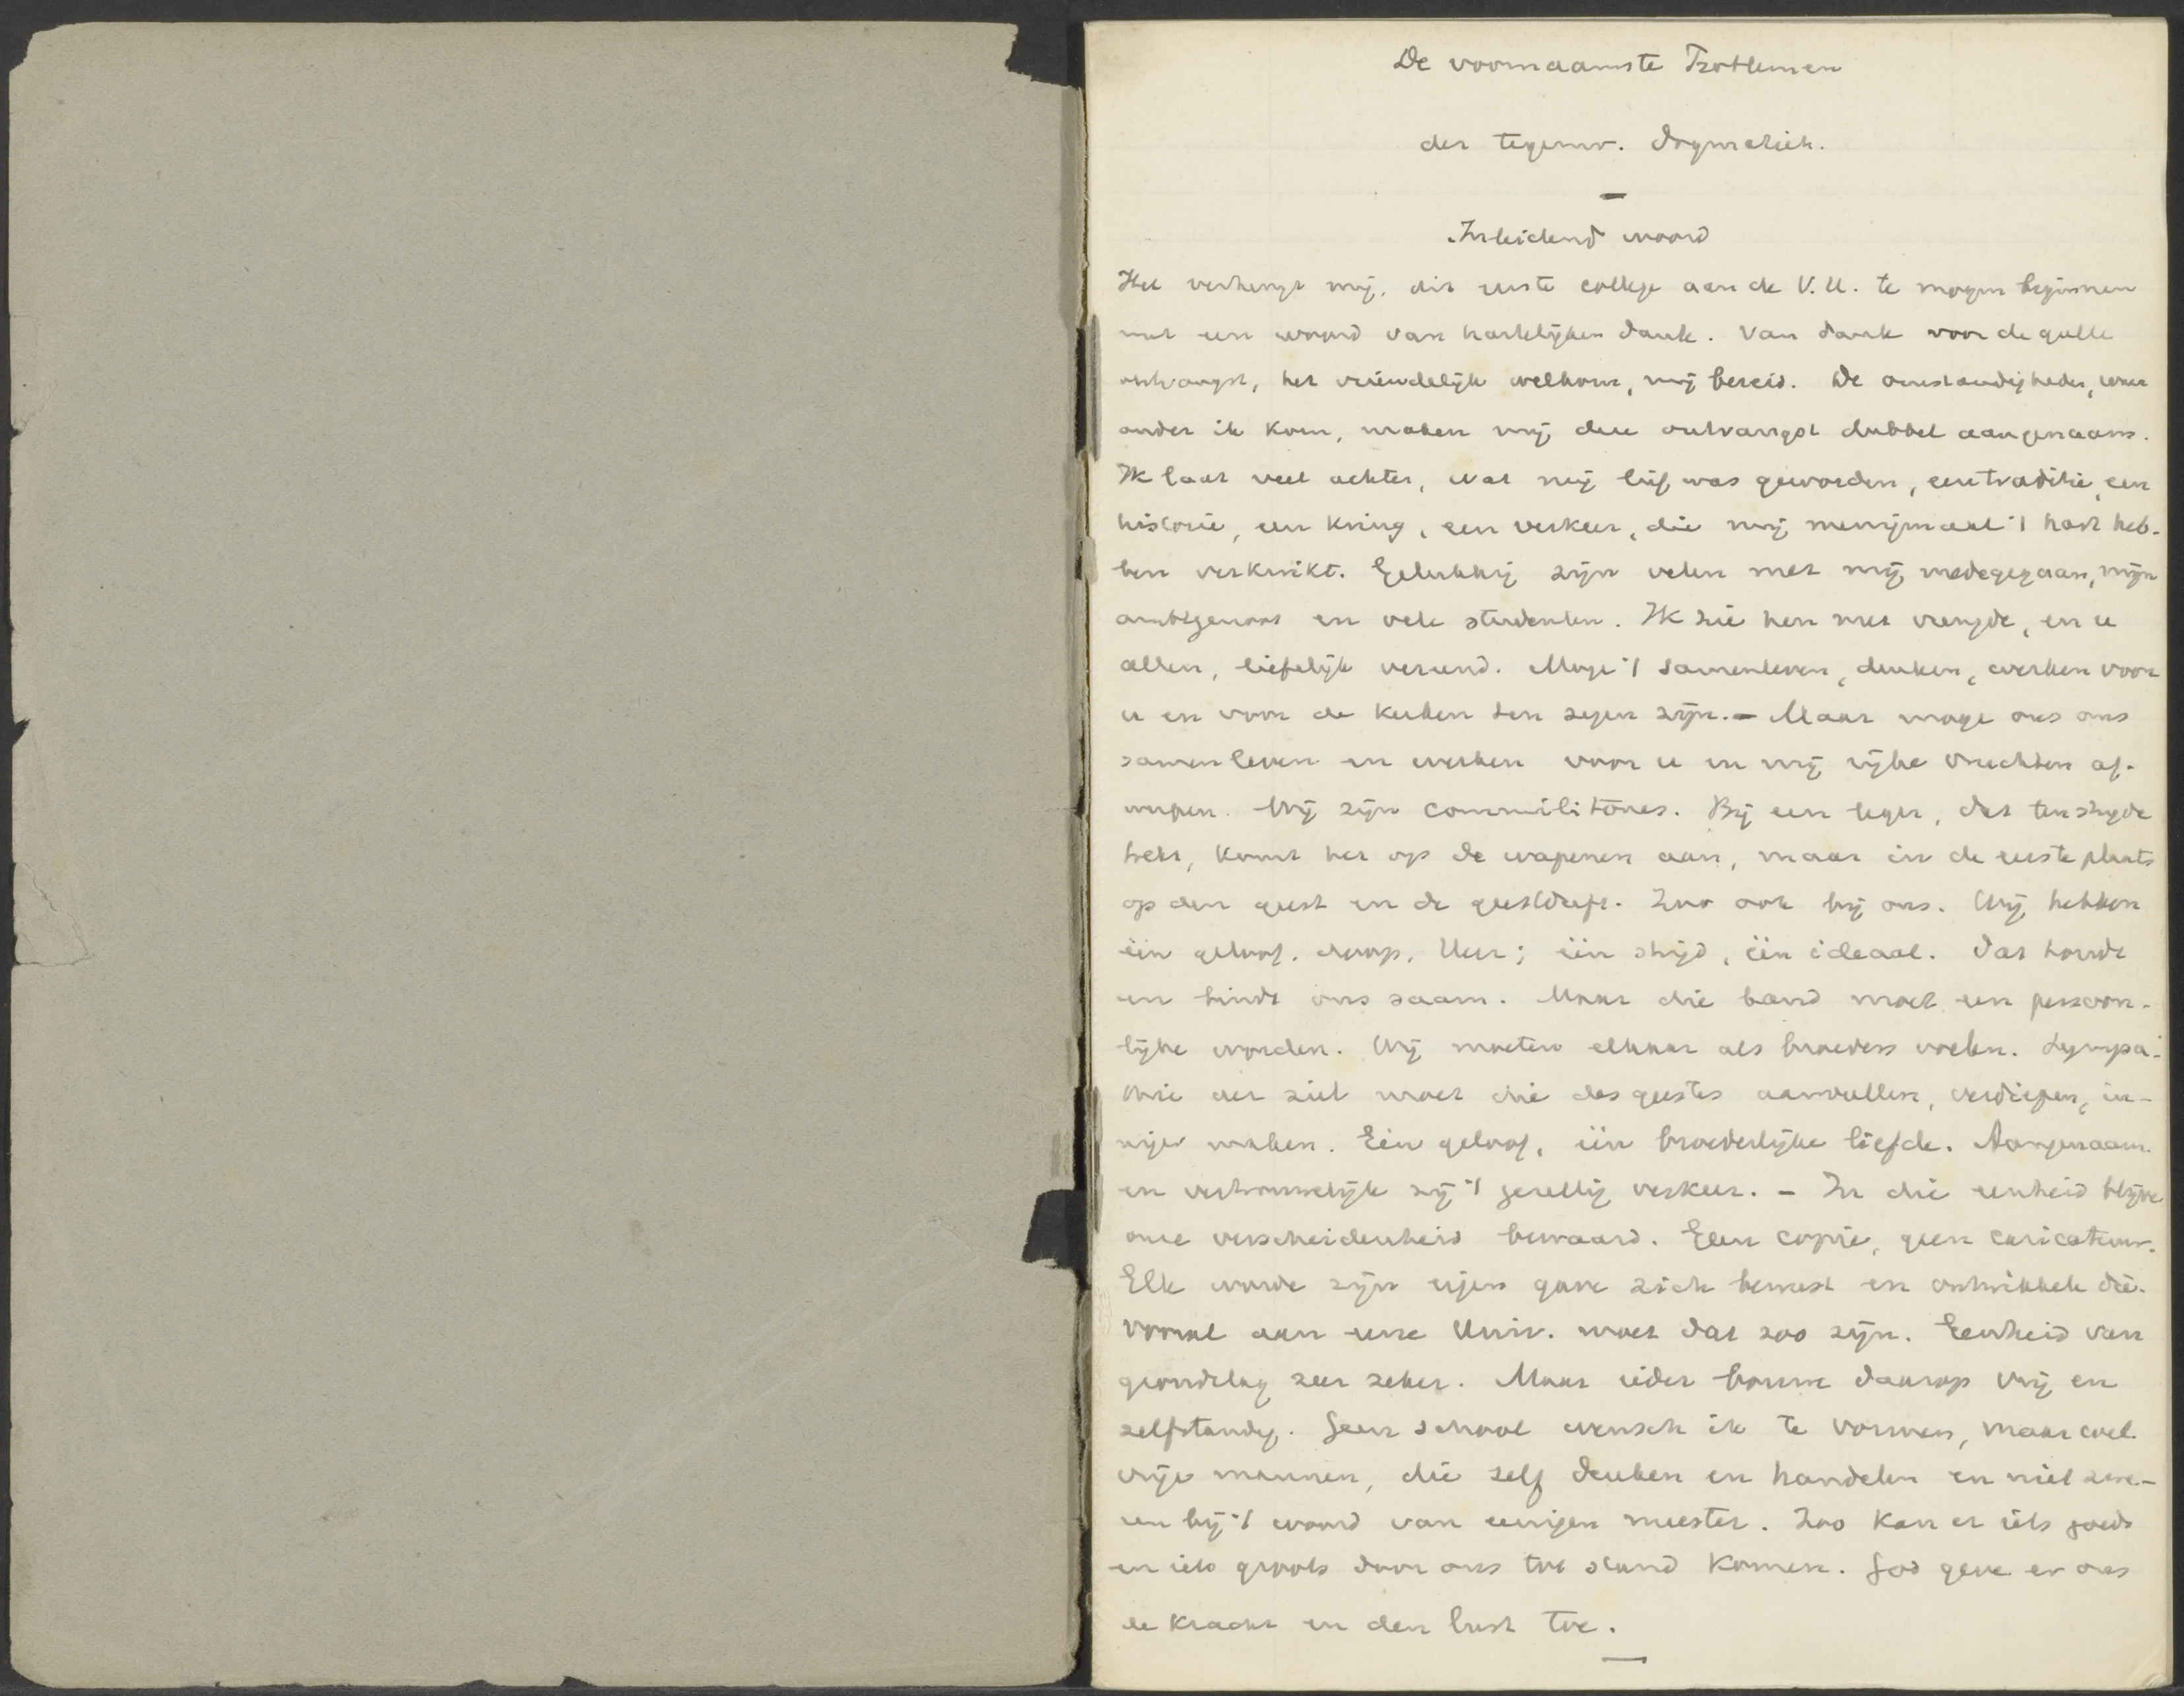 De voornaamste Problemen
der tegenw. Dogmatiek.
Inleidend woord
Het verheugt mij, dit eerste college aan de V.U. te mogen beginnen
met een woord van hartelijken dank. Van dank voor de gulle
ontvangst, het vriendelijk welkom, mij bereid. De omstandigheden, waar
onder ik kom, maken mij deze ontvangst dubbel aangenaam.
Ik laat veel achter, wat mij lief was geworden, een traditie, een
historie, een kring, een verkeer, die mij menigmaal 't hart heb-
ben verkwikt. Gelukkig zijn velen met mij medegegaan, mijn
ambtgenoot en vele studenten. Ik zie hen met vreugde, en u
allen, liefelijk vereend. Moge 't samenleven, denken, werken voor
u en voor de kerken ten zegen zijn. – Maar moge ons ons
samenleven en werken voor u en mij rijke vruchten af-
werpen. Wij zijn commilitones. Bij een leger, dat ten strijde
trekt, komt het op de wapenen aan, maar in de eerste plaats
op den geest en de geestdrift. Zoo ook bij ons. Wij hebben
één geloof, doop, Heer; één strijd, één ideaal. Dat houdt
en bindt ons saam. Maar die band moet een persoon-
lijke worden. Wij moeten elkaar als broeders voelen. Sympa-
thie der ziel moet die des geestes aanvullen, verdiepen, in-
niger maken. Eén geloof, één broederlijke liefde. Aangenaam
en vertrouwelijk zij 't gezellig verkeer. – In die eenheid blijve
onze verscheidenheid bewaard. Geen copie, geen caricatuur.
Elk worde zijn eigen gave zich bewust en ontwikkele die.
Vooral aan eene Univ. moet dat zoo zijn. Eenheid van
grondslag zeer zeker. Maar ieder bouwe daarop vrij en
zelfstandig. Geen school wensch ik te vormen, maar wel
vrije mannen, die zelf denken en handelen en niet zwe-
ren bij 't woord van eenigen meester. Zoo kan er iets goeds
en iets groots door ons tot stand komen. God geve er ons
de kracht en den lust toe.